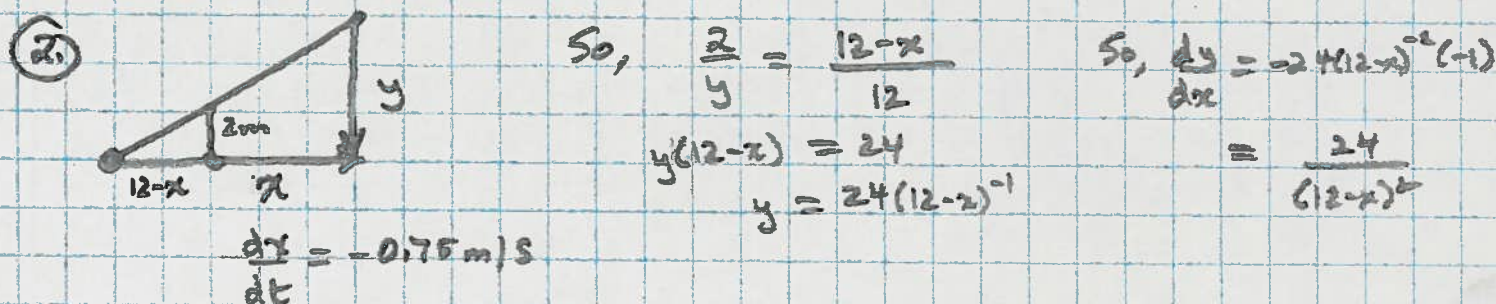 2.
y
2m
12-x x
dx/dt = -0.75 m/s
So, 2/y = (12-x)/12
y(12-x) = 24
y = 24(12-x)^-1
So, dy/dx = -24(12-x)^-2 (-1)
= 24/(12-x)^2